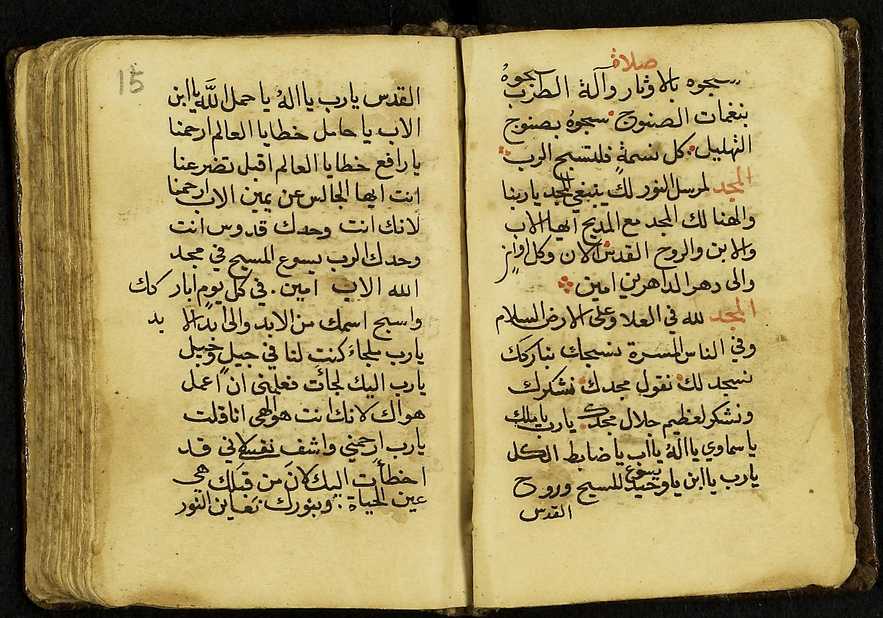 صلاة
سبحوه بالاوتار وآلة الطرب سبحوهُ
بنغمات الصنوج سبحوهُ بصنوج
التهليل كل نسمةٍ فلتسبح الرب
المجد لمرسل النور لك ينبغي المجد ياربنا
والهنا لك المجد مع المديح ايها الاب
والابن والروح القدس الان وكل اوانٍ
والى دهر الداهرين امين
المجد لله في العلا وعلى الارض السلام
وفي الناس المسرة نسبحك نباركك
نسجد لك نقول مجدك نشكرك
ونشكر لعظيم جلال مجدك يارب ياملك
ياسماوي ياالهُ يااب ياضابط الكل
يارب ياابن ياوحيد يسوع المسيح وروح
القدس
15
القدس يارب ياالهُ ياحمل اللَّه ياابن
الاب ياحامل خطايا العالم ارحمنا
يارافع خطايا العالم اقبل تضرعنا
انت ايها الجالس عن يمين الاب ارحمنا
لانك انت وحدك قدوس انت
وحدك الرب يسوع المسيح في مجد
الله الاب امين. في كل يومٍ ابار كك
واسبح اسمك من الابد والى ابد الا بد
يارب ملجاءً كنت لنا في جيلٍ وجيل
يارب اليك لجأت فعلمني ان اعمل
هواك لانك انت هو الهي انا قلت
يارب ارحمني واشف نفسي لاني قد
اخطأت اليك لانَ من قبلك هي
عين الحياة وبنورك نعاين النور